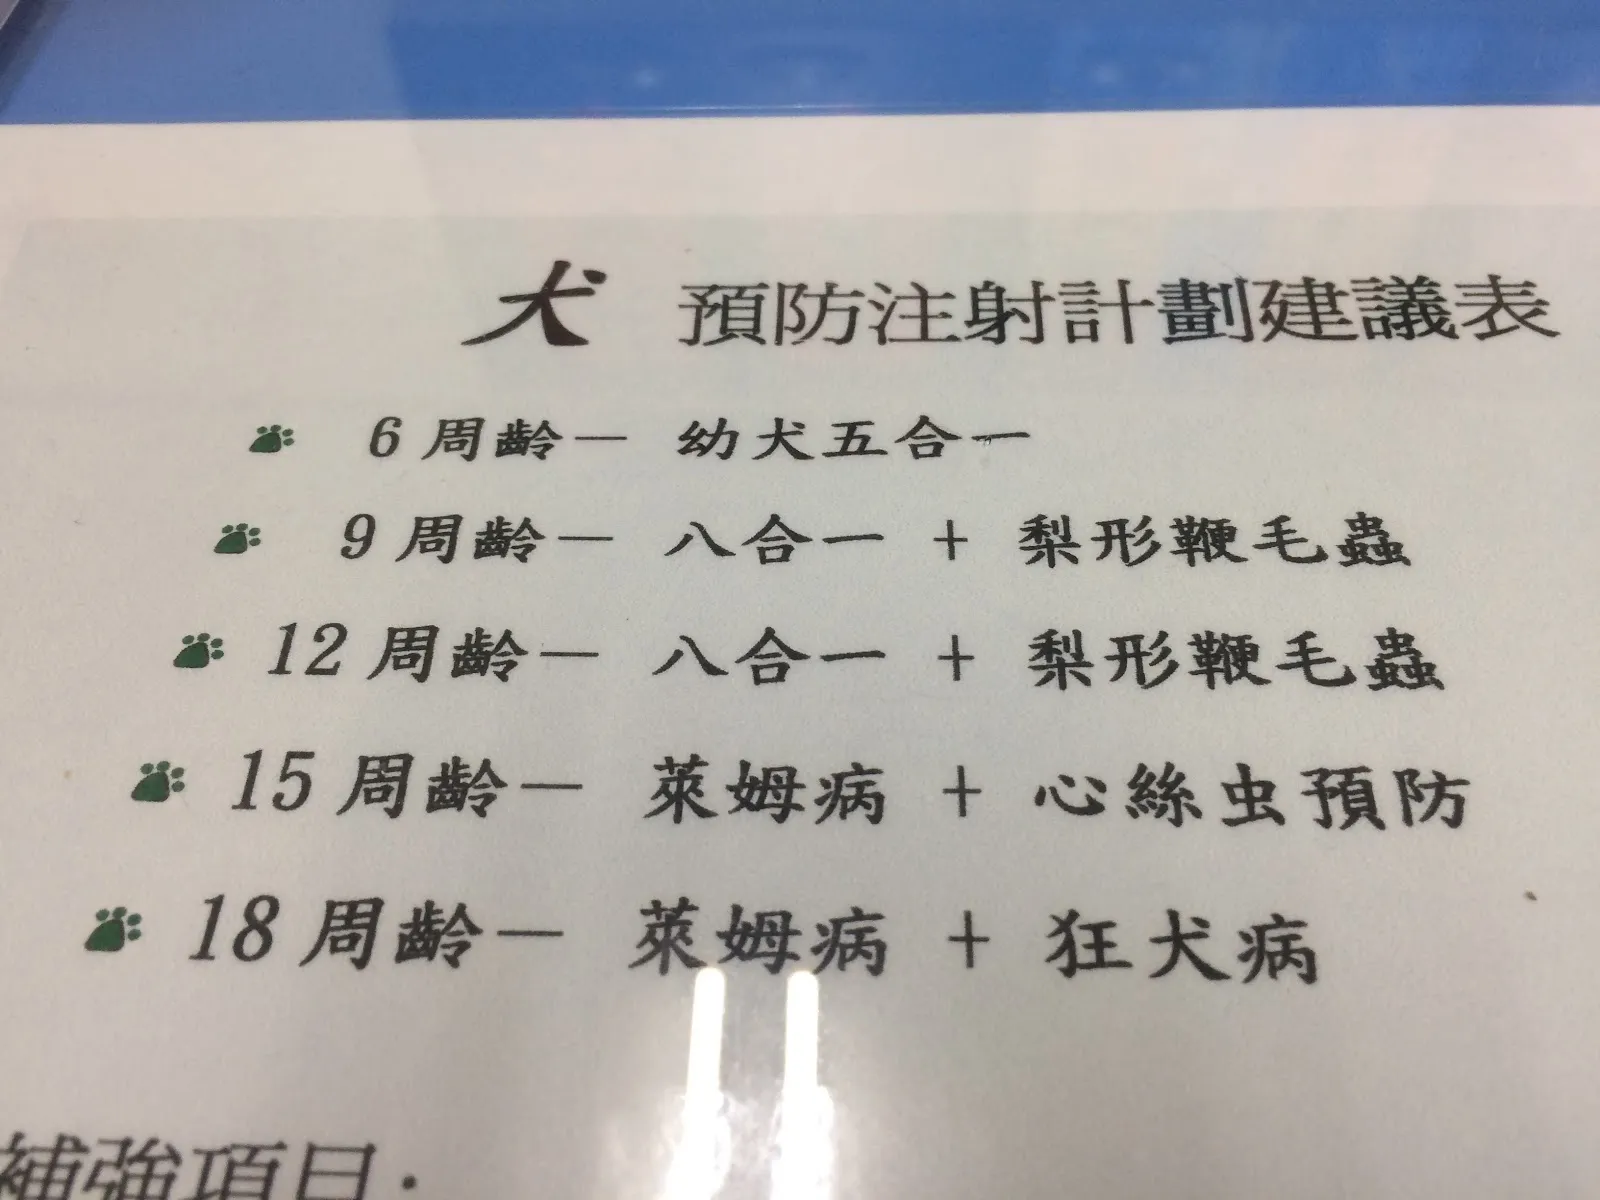 犬 預防注射計劃建議表
6 周齡— 幼犬五合一
9 周齡— 八合一 + 梨形鞭毛蟲
12 周齡— 八合一 + 梨形鞭毛蟲
15 周齡— 萊姆病 + 心絲虫預防
18 周齡— 萊姆病 + 狂犬病
補強項目: